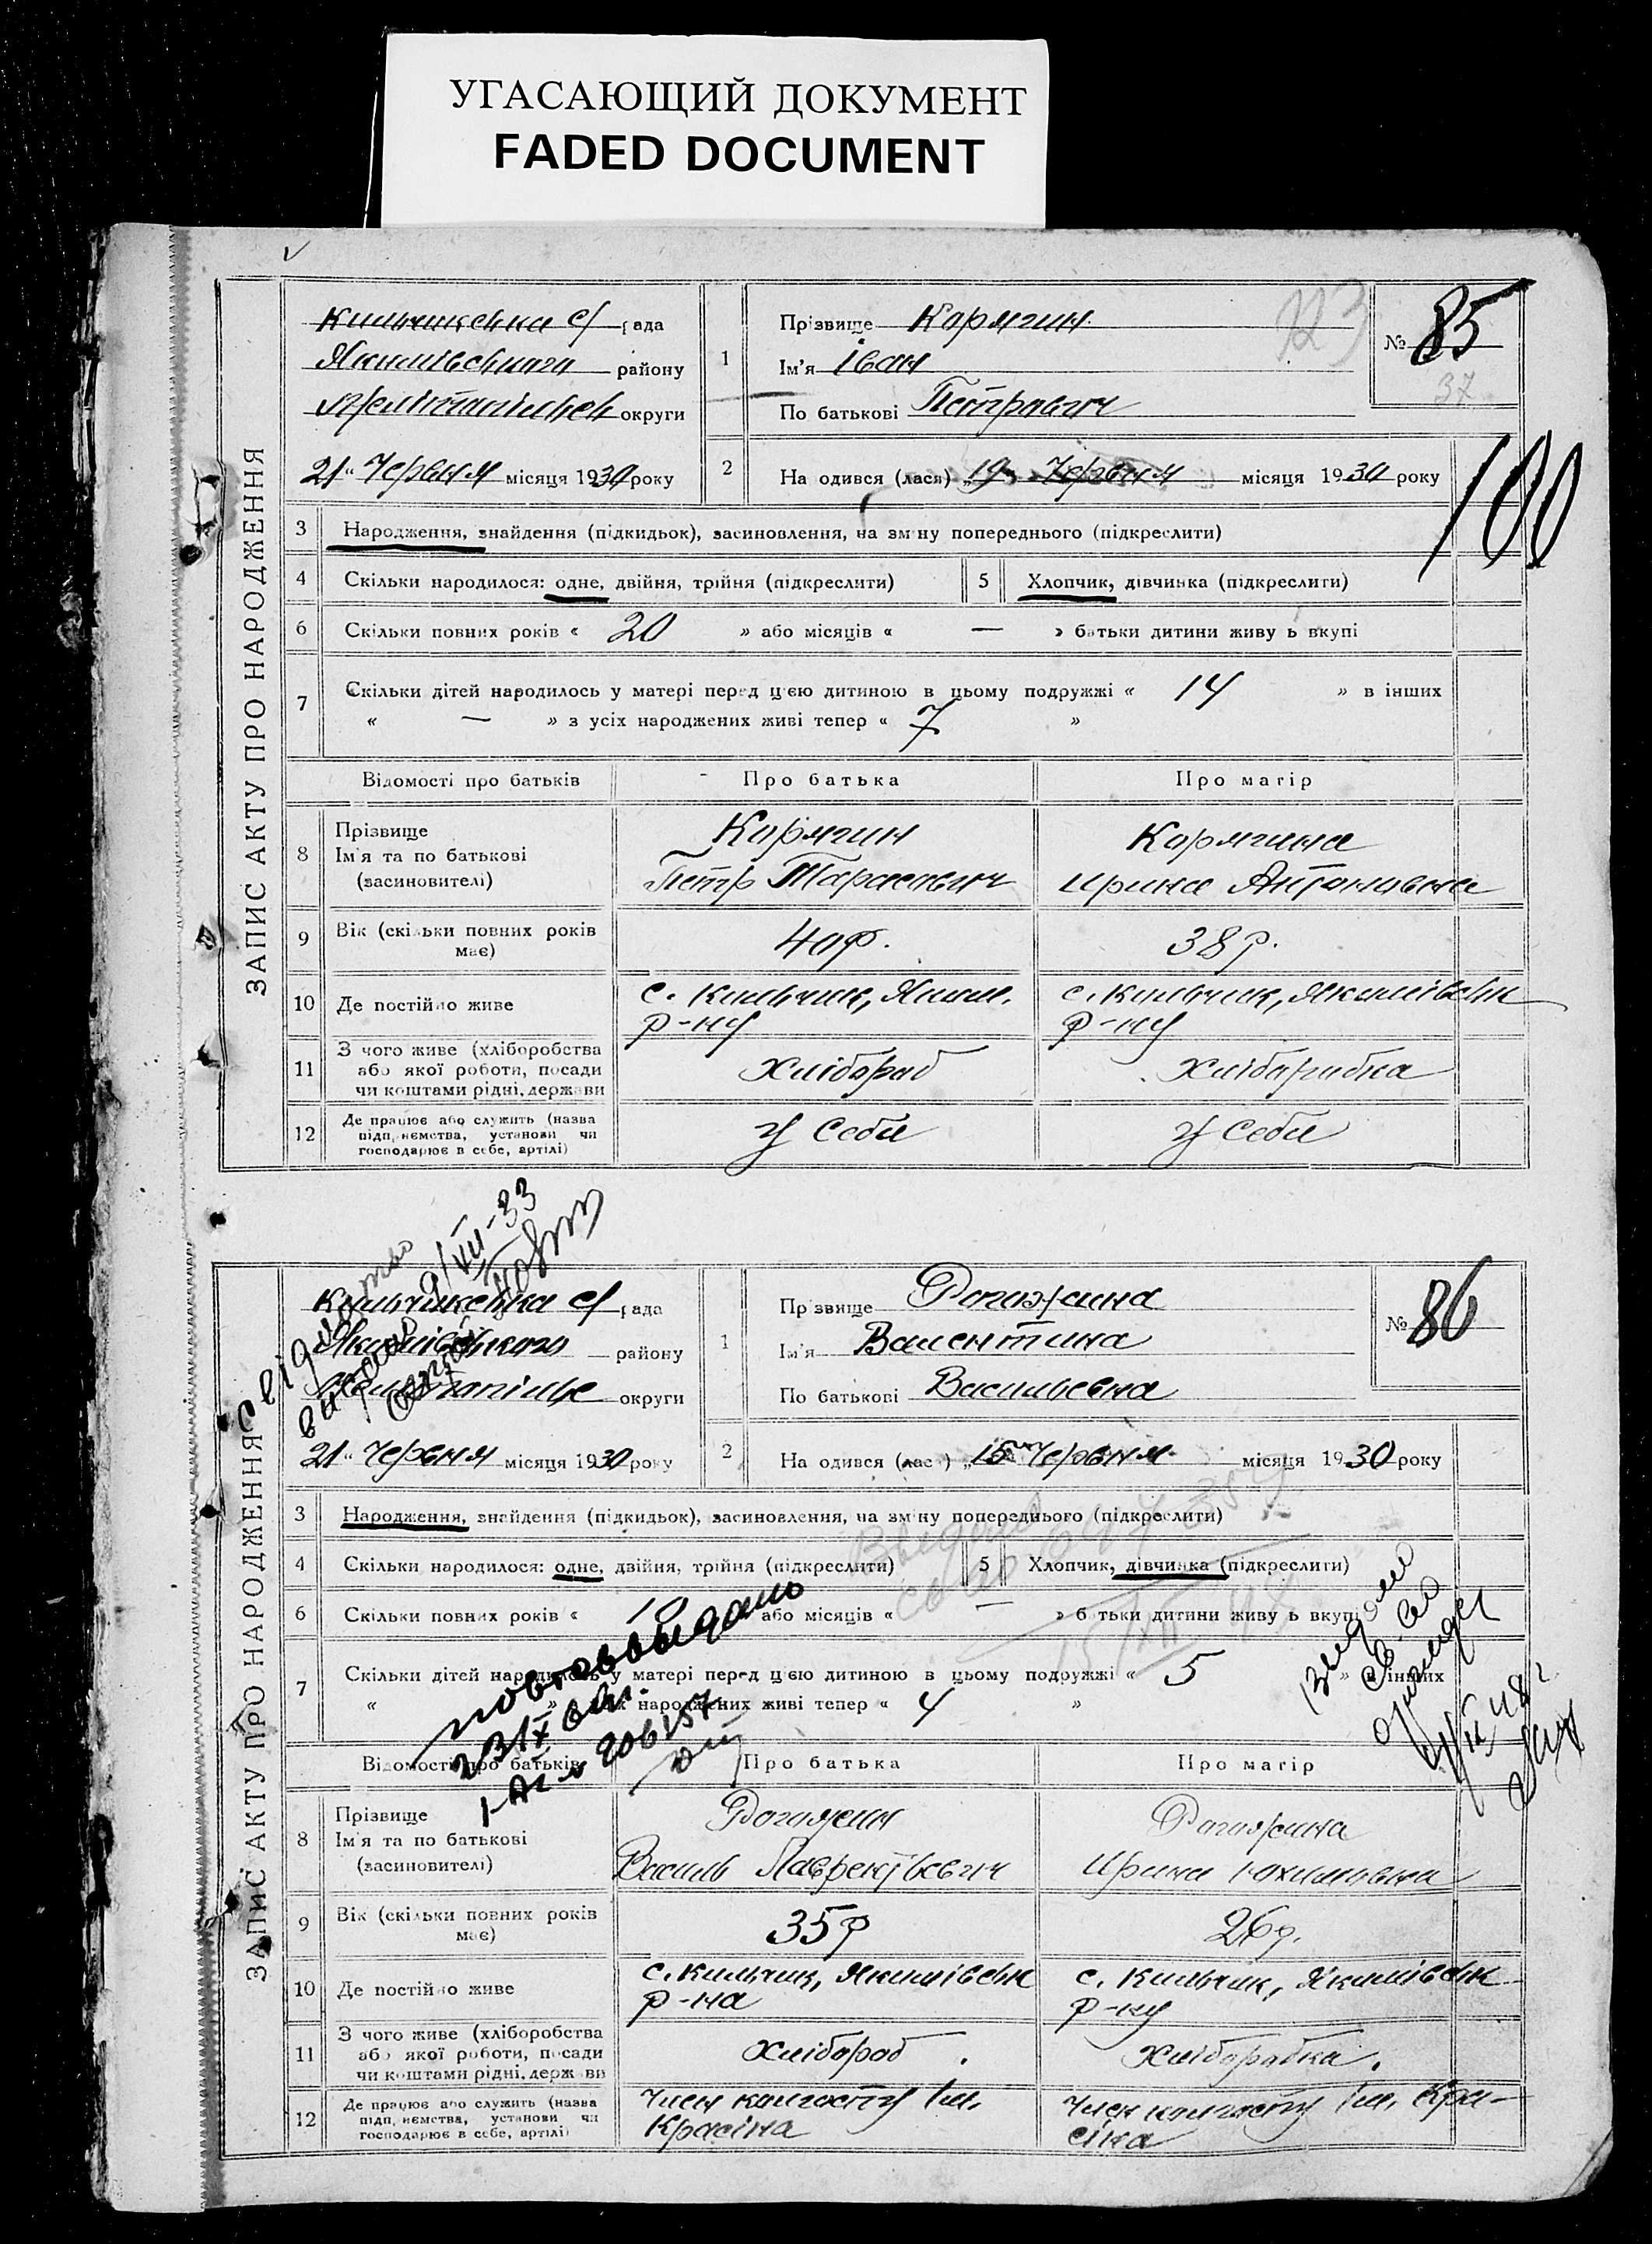 УГАСАЮЩИЙ ДОКУМЕНТ
FADED DOCUMENT
ЗАПИС АКТУ ПРО НАРОДЖЕННЯ
Кильчикська с/рада
Якимівського району
округи
21" Червня місяця 1930 року
1
Прізвище Корягин
Ім'я Іван
По батькові Петрович
№ 85
37
123
2
На одився (лася) „19" Червня місяця 1930 року
100
3 Народження, знайдення (підкидьок), засиновлення, на зміну попереднього (підкреслити)
4 Скільки народилося: одне, двійня, трійня (підкреслити) 5 Хлопчик, дівчинка (підкреслити)
6 Скільки повних років « 20 » або місяців « — » батьки дитини живу ь вкупі
7 Скільки дітей народилось у матері перед цією дитиною в цьому подружжі « 14 » в інших
« — » з усіх народжених живі тепер « 7 »
Відомості про батьків Про батька Про матір
8 Прізвище Корягин Корягина
Ім'я та по батькові Петр Тарасович Ирина Антоновна
(засиновителі)
9 Вік (скільки повних років має) 40 р. 38 р.
10 Де постійно живе с. Кильчик, Яким. р-ну с. Кильчик, Якимівськ р-ну
11 З чого живе (хліборобства або якої роботи, посади чи коштами рідні, держави Хлібороб Хліборобка
12 Де працює або служить (назва підп, немства, установи чи господарює в себе, артілі) У себе У себе
ЗАПИС АКТУ ПРО НАРОДЖЕННЯ
свідоцтво
видано 9/VII-33
Кильчикська с/рада
Якимівського району
округи
21" Червня місяця 1930 року
1
Прізвище Рогожина
Ім'я Валентина
По батькові Васильевна
№ 86
2
На одився (лас ) „15" Червня місяця 1930 року
3 Народження, знайдення (підкидьок), засиновлення, на зміну попереднього (підкреслити)
4 Скільки народилося: одне, двійня, трійня (підкреслити) 5 Хлопчик, дівчинка (підкреслити)
6 Скільки повних років « 10 або місяців « — » батьки дитини живу ь вкупі
7 Скільки дітей народилось у матері перед цією дитиною в цьому подружжі « 5 » в інших
« » з усіх народжених живі тепер « 4 »
повторно видано
Відомості про батьків Про батька Про матір
8 Прізвище Рогожин Рогожина
Ім'я та по батькові Василь Лаврентьевич Ирина Юхимовна
(засиновителі)
9 Вік (скільки повних років має) 35 р 26 р.
10 Де постійно живе с. Кильчик, Якимівськ р-на с. Кильчик, Якимівськ р-ну
11 З чого живе (хліборобства або якої роботи, посади чи коштами рідні, держави Хлібороб. Хліборобка.
12 Де працює або служить (назва підп, немства, установи чи господарює в себе, артілі) Член колгоспу ім. Красіна Член колгоспу ім. Красіна